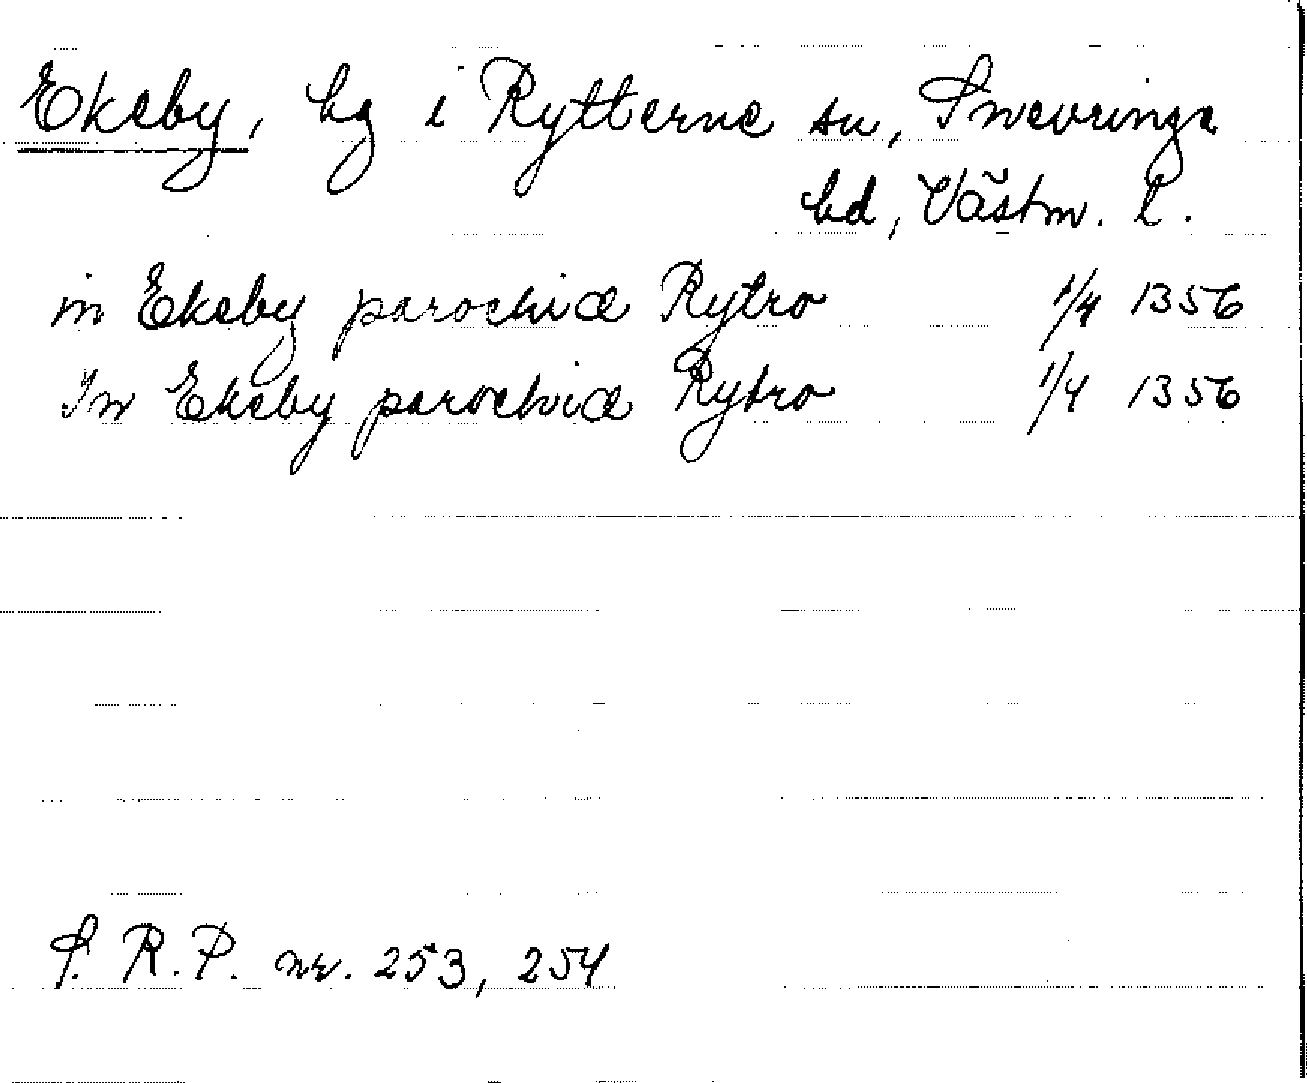 Ekeby, by i Rytterne sn, Snevringe
hd, Västm. l.
in Ekeby parochia Rytro 1/4 1356
In Ekeby parochia Rytro 1/4 1356
S. R. P. nr. 253, 254